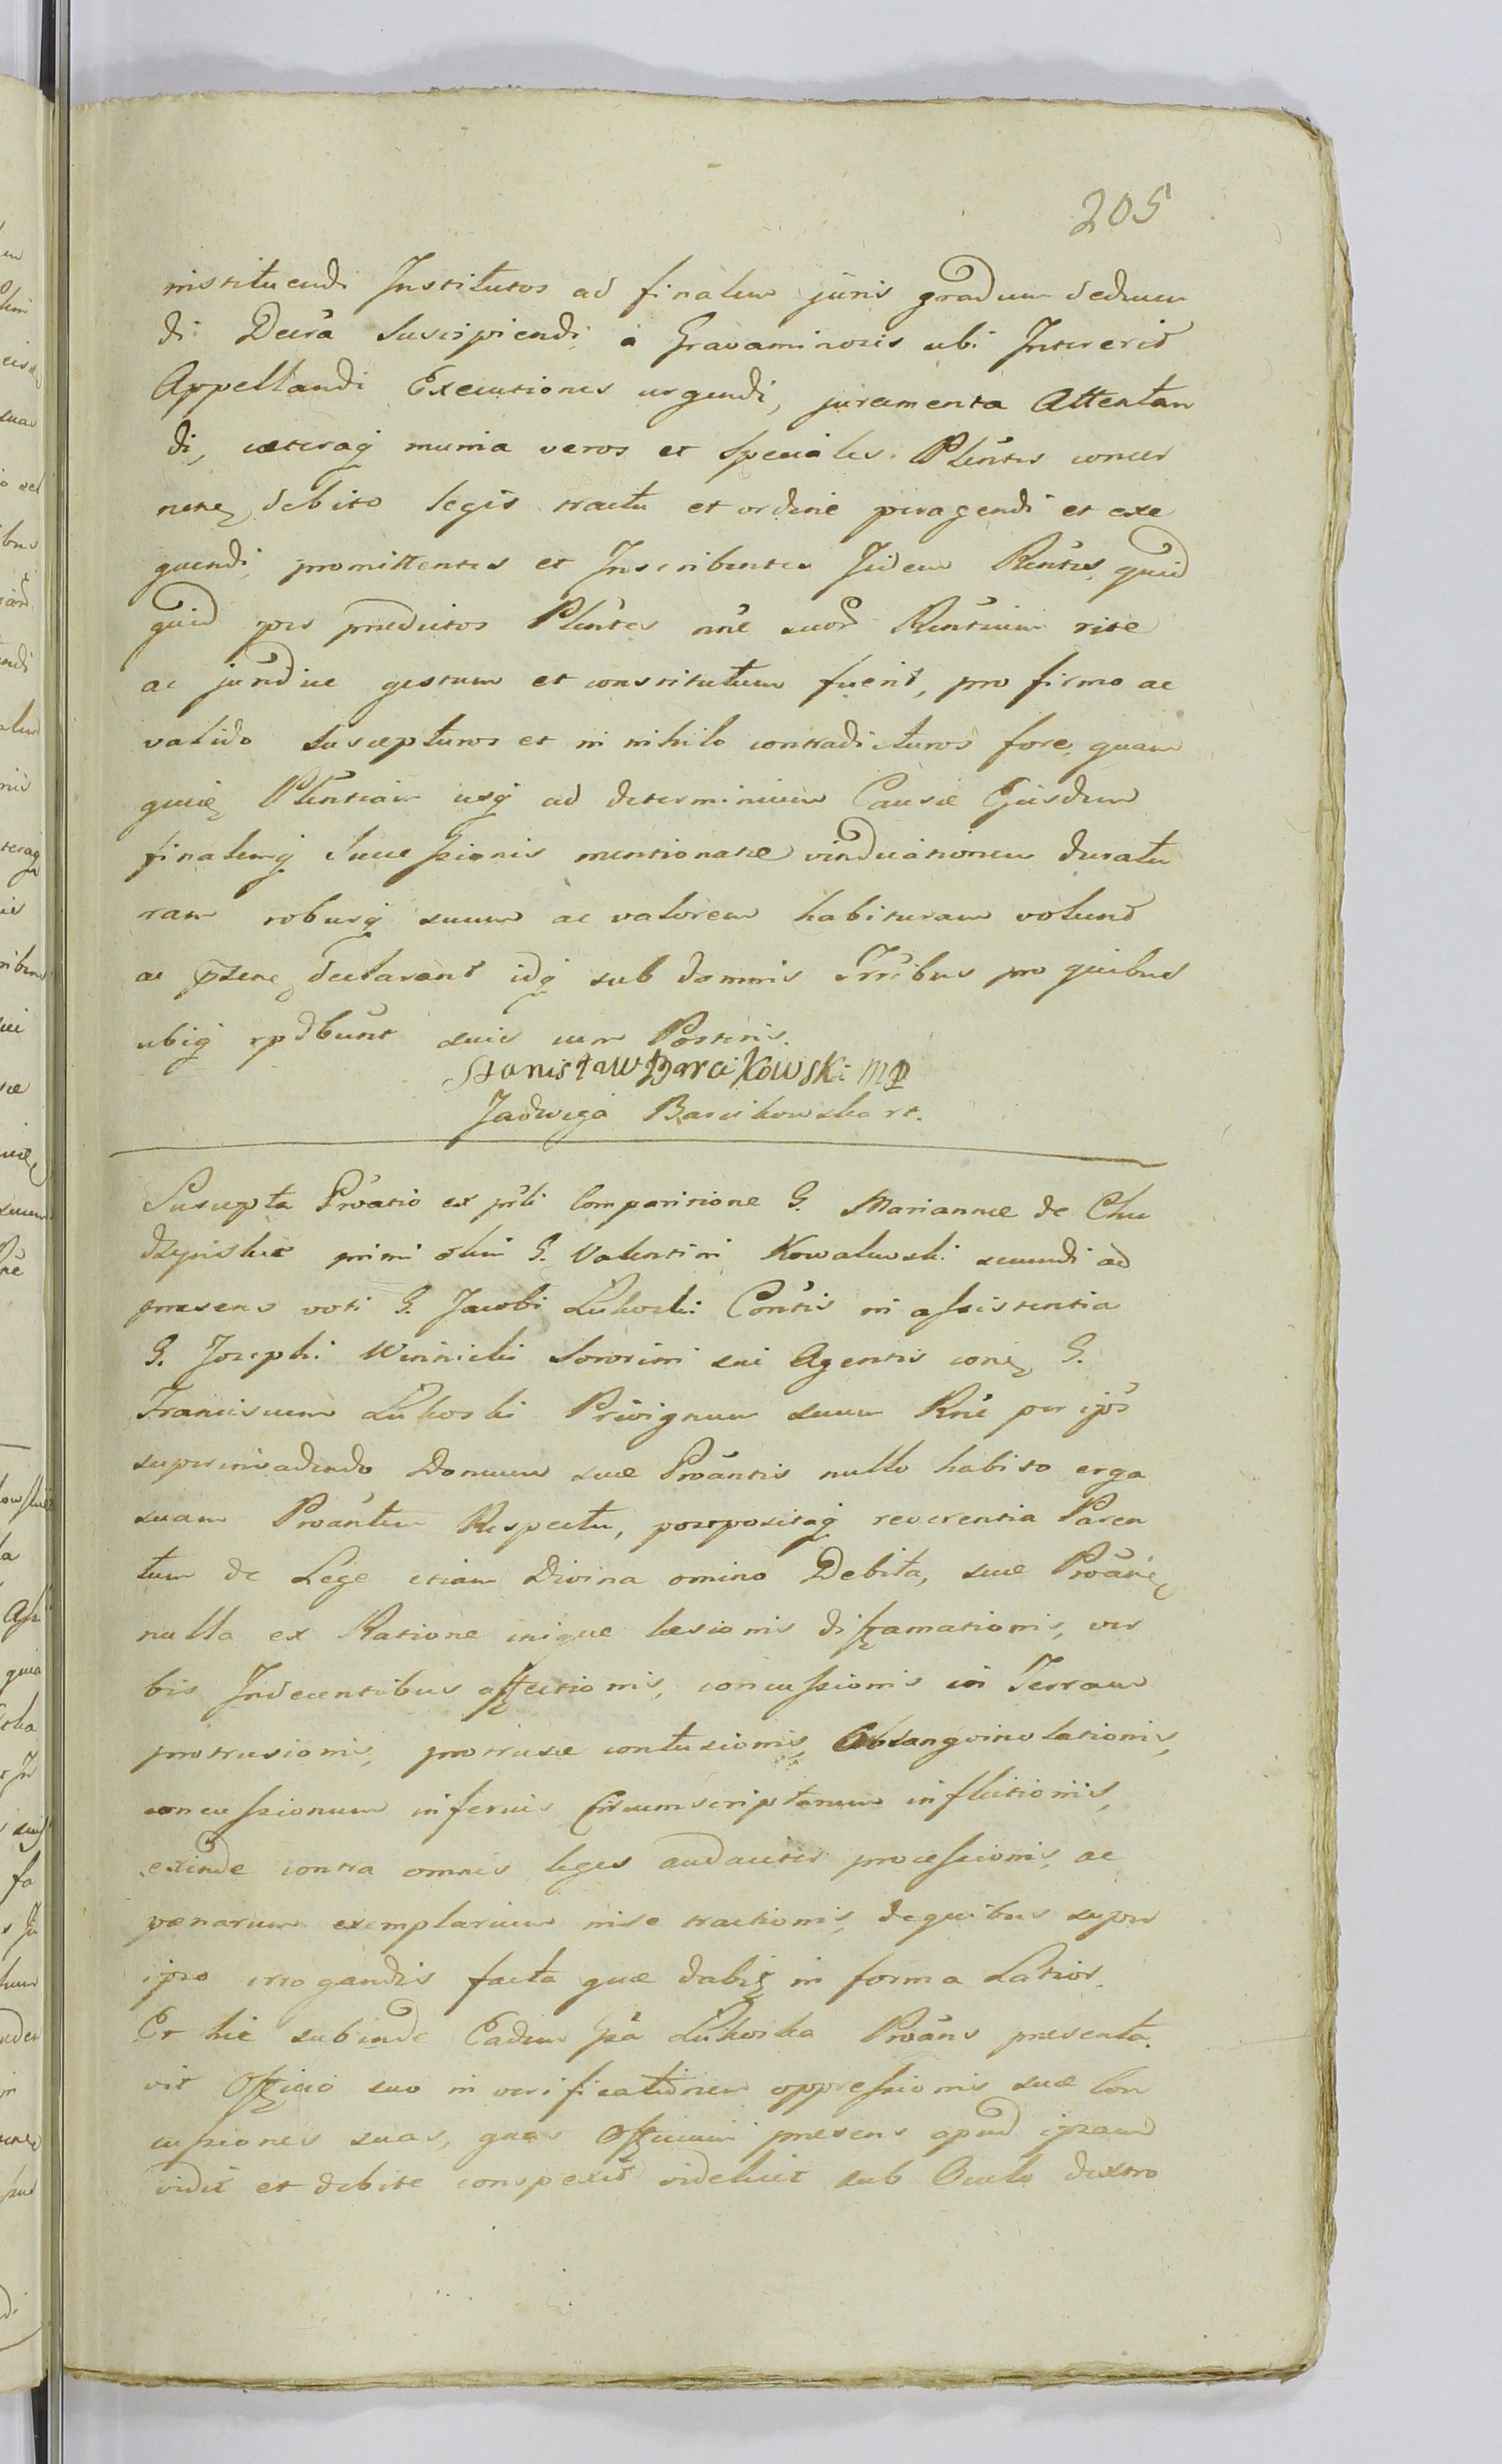 205
instituendi Institutos ad finalem juris gradum deducen
di Decra suscipiendi à Gravaminosis ubi Intererit
Appellandi Executiones urgendi, juramenta Attentan
di, caeteraq munia veros et speciales Plentes concer
nene debito legis tractu et ordine peragendi et exe
quendi, promittentes et Inscribentes Iidem Rcntes, quid
quid per praedictos Plentes nne suor Rcntium rite
ac juridice gestum et constitutum fuerit, pro firmo ac
valido suscepturos et in nihilo contradicturos fore, quam
quie Plentiam usq ad determinium Causae Ejusdem
finalemq Successionis mentionatae vindicationem duratu
ram roburq suum ac valorem habituram volunt
ac psene declarant idq sub damnis Trribus pro quibus
ubiq rpdbunt suis cum Posteris.
Stanisław Barcikowski mp
Jadwiga Barcikowska rt.
Suscepta Proatio ex prli Comparitione G. Mariannae de Chu
dzynskie primi olim G. Valentini Kowalewski secundi ad
praesens voti G. Jacobi Lukoski Contis in assistentia
G. Josephi Winnicki Sororini sui Agentis cone G.
Franciscum Lukoski Privignum suum Rne per ips
superinvadendo Domum suae Proantis nullo habito erga
suam Proantem Respectu, postpositaq reverentia Paren
tum de Lege etiam Divina omino Debita, suae Proane
nulla ex Ratione inique laesionis diffamationis, ver
bis Indecentibus affectionis, concussionis in Terram
protrusionis, protrusae contusionis, Obsangvinolationis,
concussionum inferius Circumscriptarum inflictionis,
exinde contra omnes leges audacter processionis, ac
paenarum exemplarium in se tractionis, de quibus super
ipso irrogandis facta quae dabit in forma Latior.
Et hic subinde Eadem Gsa Lukoska Proans praesenta
vit Officio suo in verificationem oppressionis suae Con
cussiones suas, quas Officium praesens apud ipsam
vidit et debite conspexit videlicet sub Oculo dextro